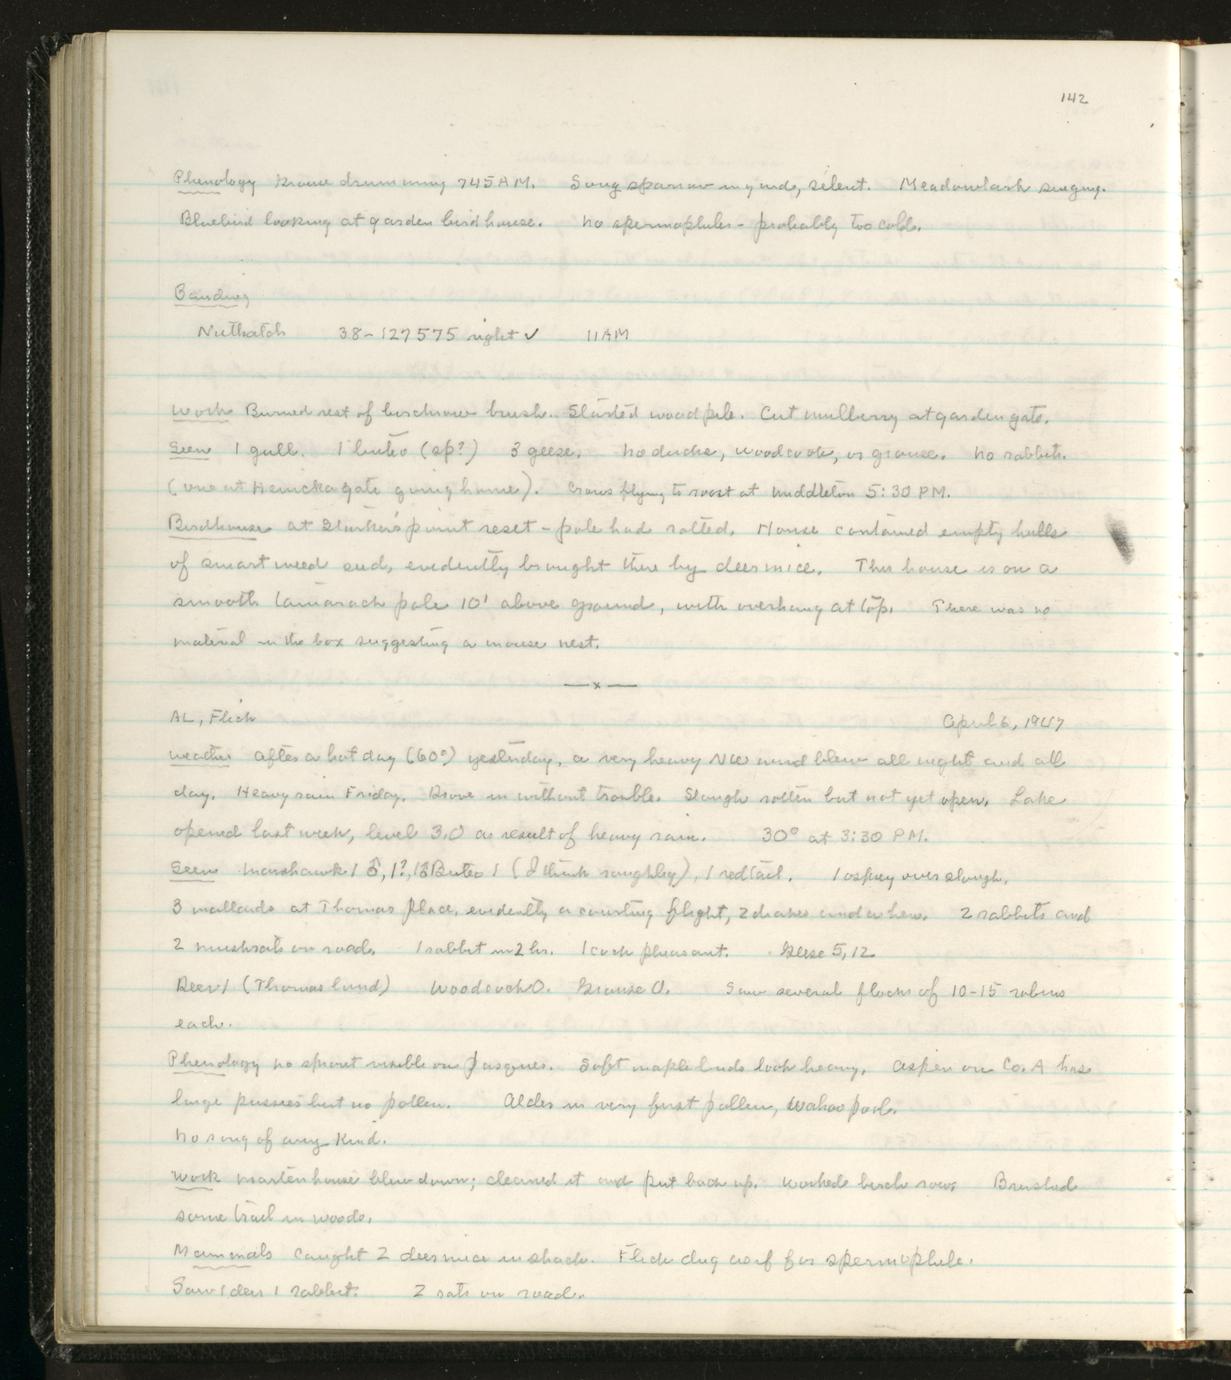 142
Phenology Grouse drumming 745 AM. Song sparrow in yard, silent. Meadowlark singing.
Bluebird looking at garden bird house. No spermophiles - probably too cold.
Banding
Nuthatch 38-127575 right ✓ 11AM
Work Burned rest of birchrow brush. Started woodpile. Cut mulberry at garden gate.
Seen 1 gull. 1 buteo (sp?) 3 geese. No ducks, woodcock, or grouse. No rabbits.
(one at gate going home). Crows flying to roast at Middleton 5:30 PM.
Birdhouse at point reset - pole had rotted. House contained empty hulls
of smartweed seed, evidently brought there by deermice. This house is on a
smooth tamarack pole 10' above ground, with overhang at top. There was no
material in the box suggesting a mouse nest.
—x—
AL, Flick April 6, 1947
Weather After a hot day (60°) yesterday, a very heavy NW wind blew all night and all
day. Heavy rain Friday. Drove in without trouble. Slough rotten but not yet open. Lake
opened last week, level 3.0 as result of heavy rain. 30° at 3:30 PM.
Seen Marshhawk 1 ♂, 1?, Buteo 1 (I think roughleg), 1 redtail. 1 osprey over slough.
3 mallards at Thomas place, evidently a courting flight, 2 drakes and a hen. 2 rabbits and
2 muskrats on road. 1 rabbit in 2 hr. 1 cock pheasant. Geese 5, 12
Deer 1 (Thomas land) Woodcock 0. Grouse 0. Saw several flocks of 10-15 robins
each.
Phenology No sprout visible on pasques. Soft maple buds look heavy. Aspen on Co. A has
large pussies but no pollen. Alder in very first pollen, Wahoo pool.
No song of any kind.
Work Marten house blew down; cleaned it and put back up. Worked birch row. Brushed
some trail in woods.
Mammals Caught 2 deermice in shack. Flick dug for spermophile.
Saw 1 deer 1 rabbit. 2 rats on road.